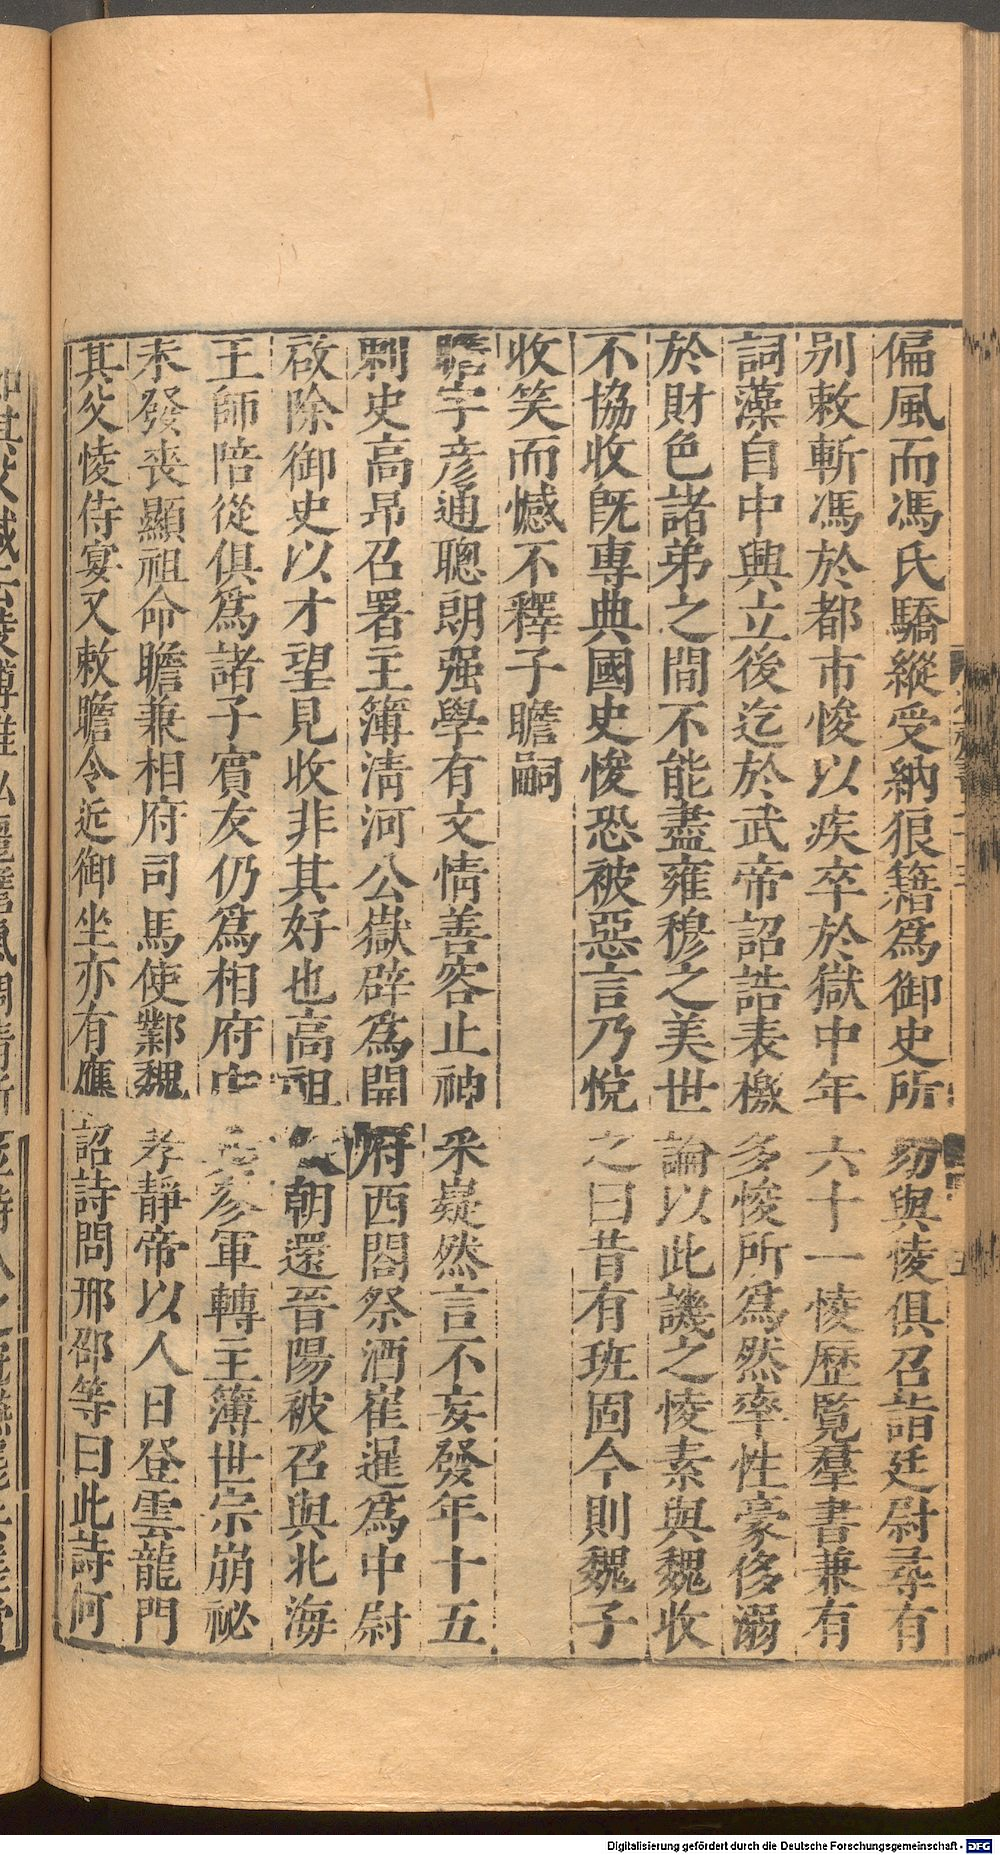 偏風而馮氏驕縱受納狼籍爲御史所劾與㥄俱召詣廷尉尋有
别敕斬馮於都市㥄以疾卒於獄中年六十一㥄歷覽羣書兼有
詞藻自中興立後迄於武帝詔誥表檄多㥄所爲然率性豪侈溺
於財色諸弟之間不能盡雍穆之美世論以此譏之㥄素與魏收
不協收旣專典國史㥄恐被惡言乃悅之曰昔有班固今則魏子
收笑而憾不釋子瞻嗣
瞻字彦通聰朗强學有文情善容止神采嶷然言不妄發年十五
刺史高昻召署主簿淸河公嶽辟爲開府西閤祭酒崔暹爲中尉
啟除御史以才望見收非其好也高祖入朝還晉陽被召與北海
王師陪從俱爲諸子賓友仍爲相府中兵參軍轉主簿世宗崩祕
未發喪顯祖命瞻兼相府司馬使鄴魏孝靜帝以人日登雲龍門
其父㥄侍宴又敕瞻令近御坐亦有應詔詩問邢邵等曰此詩何
Digitalisierung gefördert durch die Deutsche Forschungsgemeinschaft - DFG